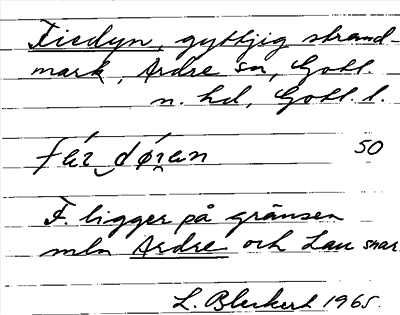 Fiedyn, gyttjig strand-
mark, Ardre sn, Gotl.
n. hd, Gotl. l.
50
F. ligger på gränsen
mln Ardre och Lau snar.
L. 1965.